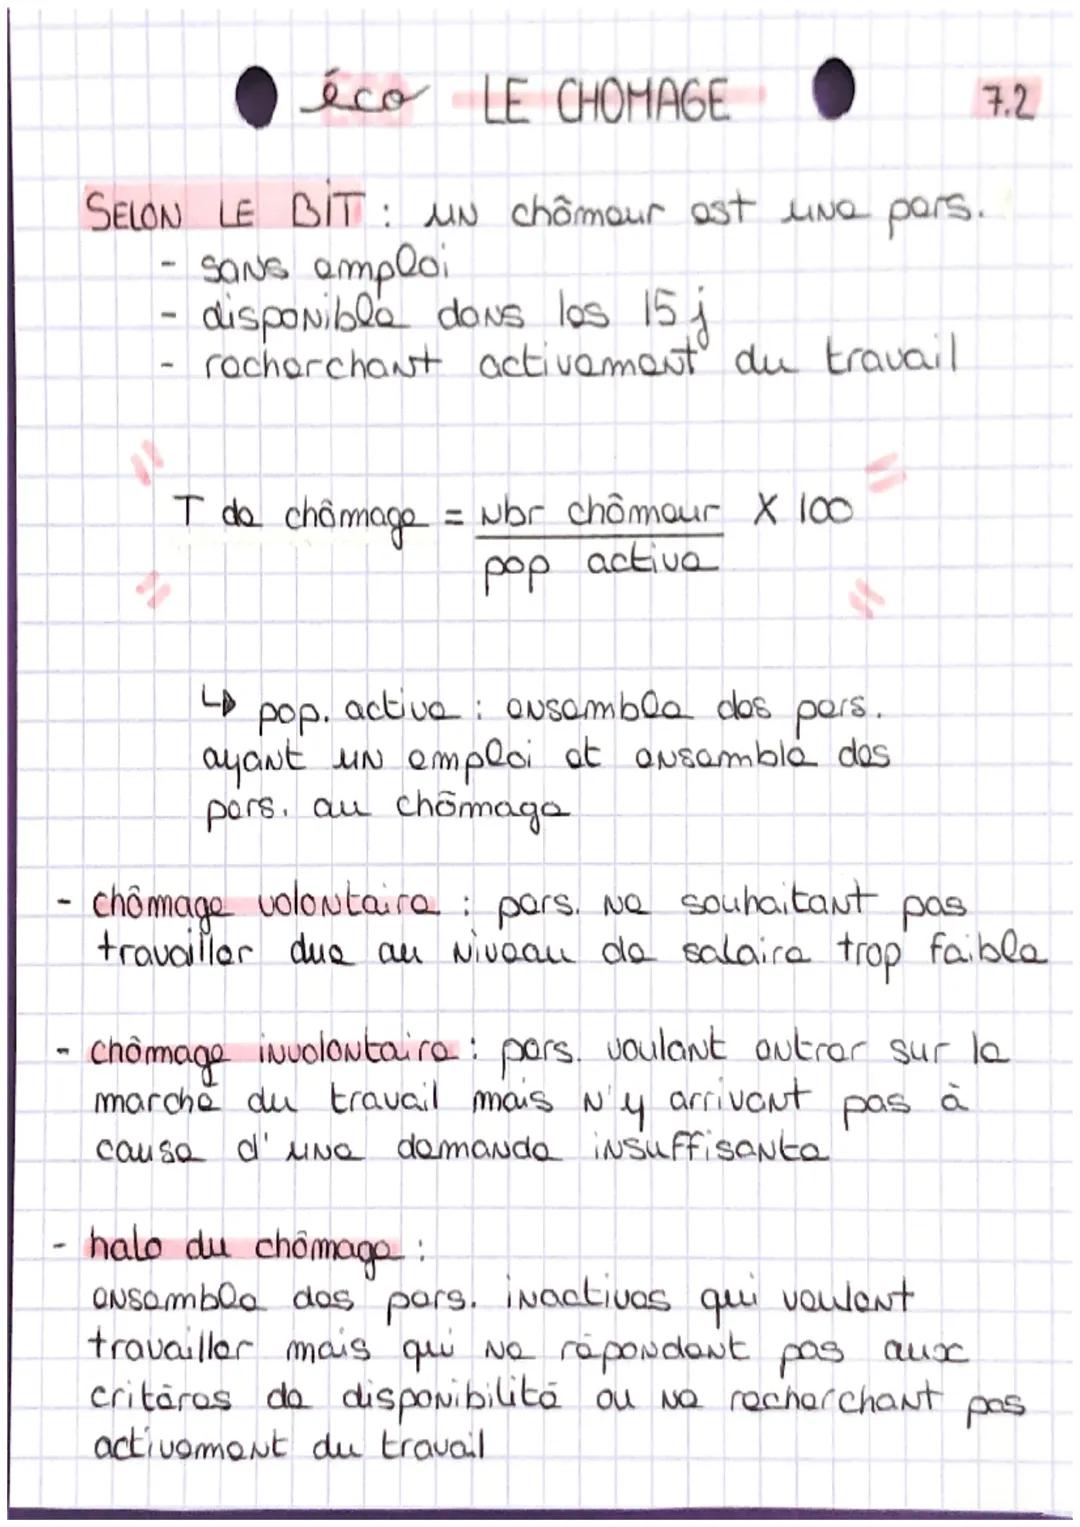 éco LE CHOMAGE 7.2
SELON LE BIT : un chômeur est une pers.
- sans emploi
- disponible dans les 15 j
- recherchant activement du travail
T de chômage = nbr chômeur X 100
pop active
↳ pop. active : ensemble des pers.
ayant un emploi et ensemble des
pers. au chômage
- chômage volontaire : pers. ne souhaitant pas
travailler due au niveau de salaire trop faible
- chômage involontaire : pers. voulant entrer sur le
marché du travail mais n'y arrivant pas à
cause d'une demande insuffisante
- halo du chômage :
ensemble des pers. inactives qui veulent
travailler mais qui ne répondent pas aux
critères de disponibilité ou ne recherchant pas
activement du travail